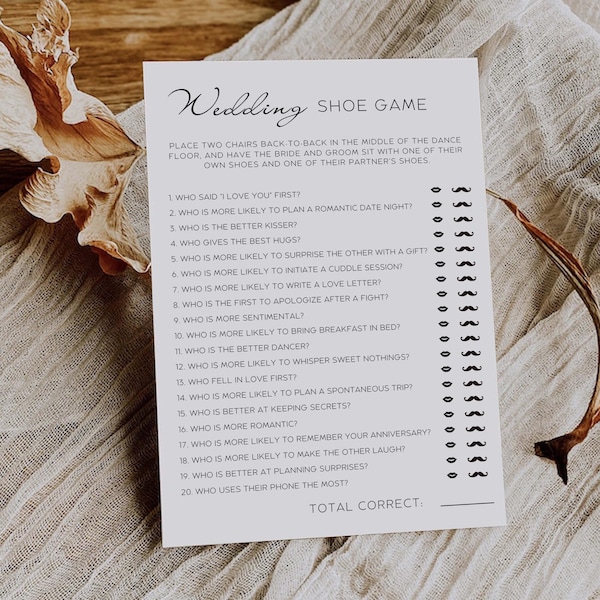 Wedding SHOE GAME
PLACE TWO CHAIRS BACK-TO-BACK IN THE MIDDLE OF THE DANCE
FLOOR, AND HAVE THE BRIDE AND GROOM SIT WITH ONE OF THEIR
OWN SHOES AND ONE OF THEIR PARTNER'S SHOES.
1. WHO SAID "I LOVE YOU" FIRST?
2. WHO IS MORE LIKELY TO PLAN A ROMANTIC DATE NIGHT?
3. WHO IS THE BETTER KISSER?
4. WHO GIVES THE BEST HUGS?
5. WHO IS MORE LIKELY TO SURPRISE THE OTHER WITH A GIFT?
6. WHO IS MORE LIKELY TO INITIATE A CUDDLE SESSION?
7. WHO IS MORE LIKELY TO WRITE A LOVE LETTER?
8. WHO IS THE FIRST TO APOLOGIZE AFTER A FIGHT?
9. WHO IS MORE SENTIMENTAL?
10. WHO IS MORE LIKELY TO BRING BREAKFAST IN BED?
11. WHO IS THE BETTER DANCER?
12. WHO IS MORE LIKELY TO WHISPER SWEET NOTHINGS?
13. WHO FELL IN LOVE FIRST?
14. WHO IS MORE LIKELY TO PLAN A SPONTANEOUS TRIP?
15. WHO IS BETTER AT KEEPING SECRETS?
16. WHO IS MORE ROMANTIC?
17. WHO IS MORE LIKELY TO REMEMBER YOUR ANNIVERSARY?
18. WHO IS MORE LIKELY TO MAKE THE OTHER LAUGH?
19. WHO IS BETTER AT PLANNING SURPRISES?
20. WHO USES THEIR PHONE THE MOST?
TOTAL CORRECT: